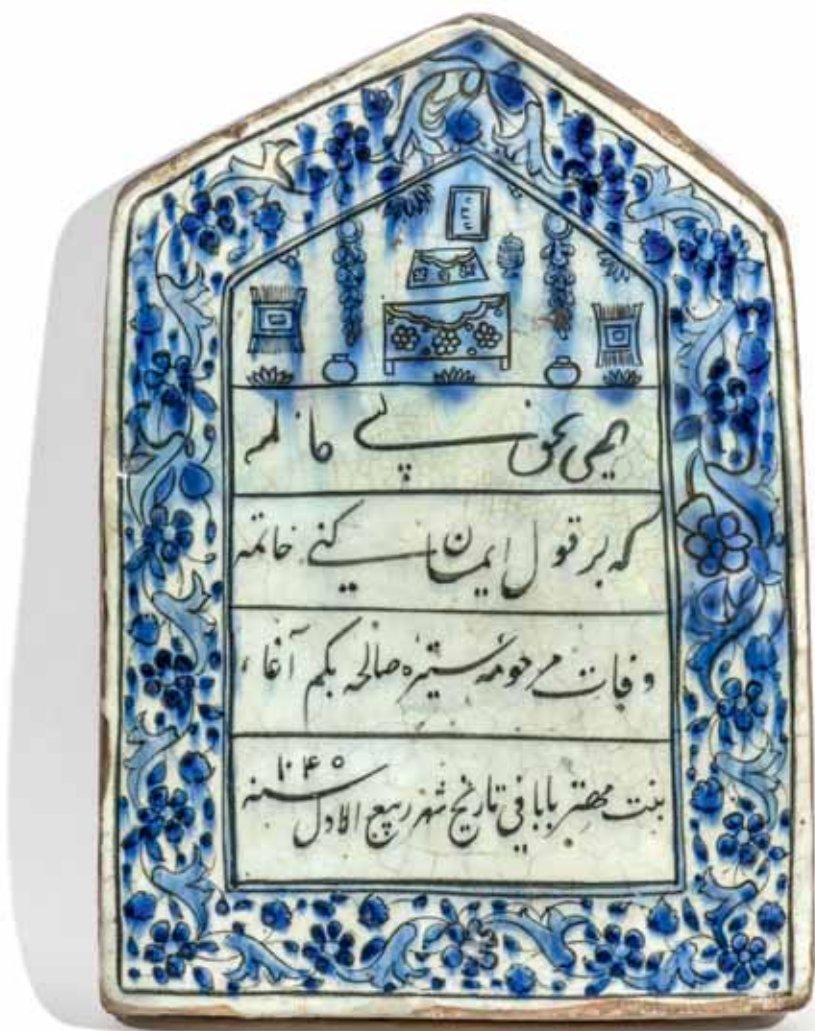 الهی بحق بنی فاطمه
که بر قول ایمان کنی خاتمه
وفات مرحومه ستیره صالحه بکم آغا
بنت مهتر بابا فی تاریخ شهر ربیع الاول سنه ۱۰۴۵